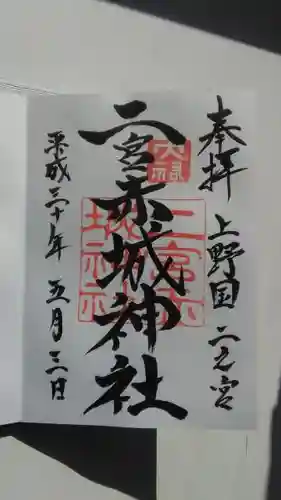 奉拝 上野国 二之宮
二宮赤城神社
二宮赤
城神社
平成三十年 五月三日